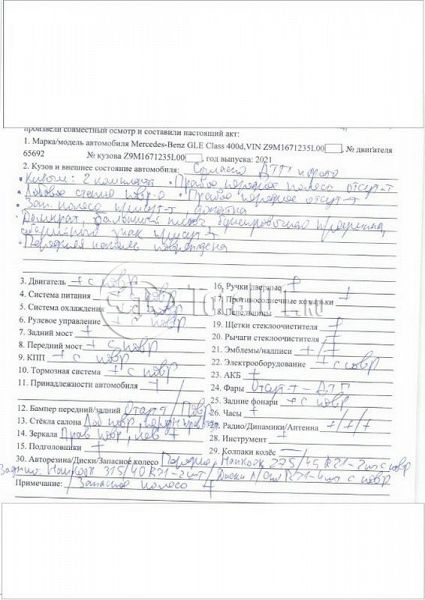 произвели совместный осмотр и составили настоящий акт:
1. Марка/модель автомобиля Mercedes-Benz GLE Class 400d,VIN Z9M1671235L00 , № двигателя
65692 № кузова Z9M1671235L00 , год выпуска: 2021
2. Кузов и внешнее состояние автомобиля: Согласно ДТП и фото
• Ключи: 2 комплекта • Правое переднее колесо отсут-т
• Лобовое стекло повр-о • Правое переднее отсут-т
• Зап. колесо присут-т
• Домкрат,
знак присут-т
• Передняя повреждена
3. Двигатель + с повр
4. Система питания повр
5. Система охлаждения повр
6. Рулевое управление + повр
7. Задний мост +
8. Передний мост + с повр
9. КПП + с повр
10. Тормозная система + с повр
11. Принадлежности автомобиля +
12. Бампер передний/задний Отсут / Повр
13. Стёкла салона Лоб повр,
14. Зеркала Прав повр, лев +
15. Подголовники +
16. Ручки дверные +
17. Противосолнечные козырьки +
18. Пепельницы
19. Щетки стеклоочистителя +
20. Рычаги стеклоочистителя +
21. Эмблемы/надписи + / +
22. Электрооборудование + с повр
23. АКБ +
24. Фары Отсут-т – ДТП
25. Задние фонари + с повр
26. Часы +
27. Радио/Динамики/Антенна + / + / +
28. Инструмент +
29. Колпаки колёс —
30. Авторезина/Диски/Запасное колесо Передние Hankook 275/45 R21-2шт с повр
Задние Hankook 315/40 R21-2шт / Диски R21-4шт с повр
Примечание: / Запасное колесо +